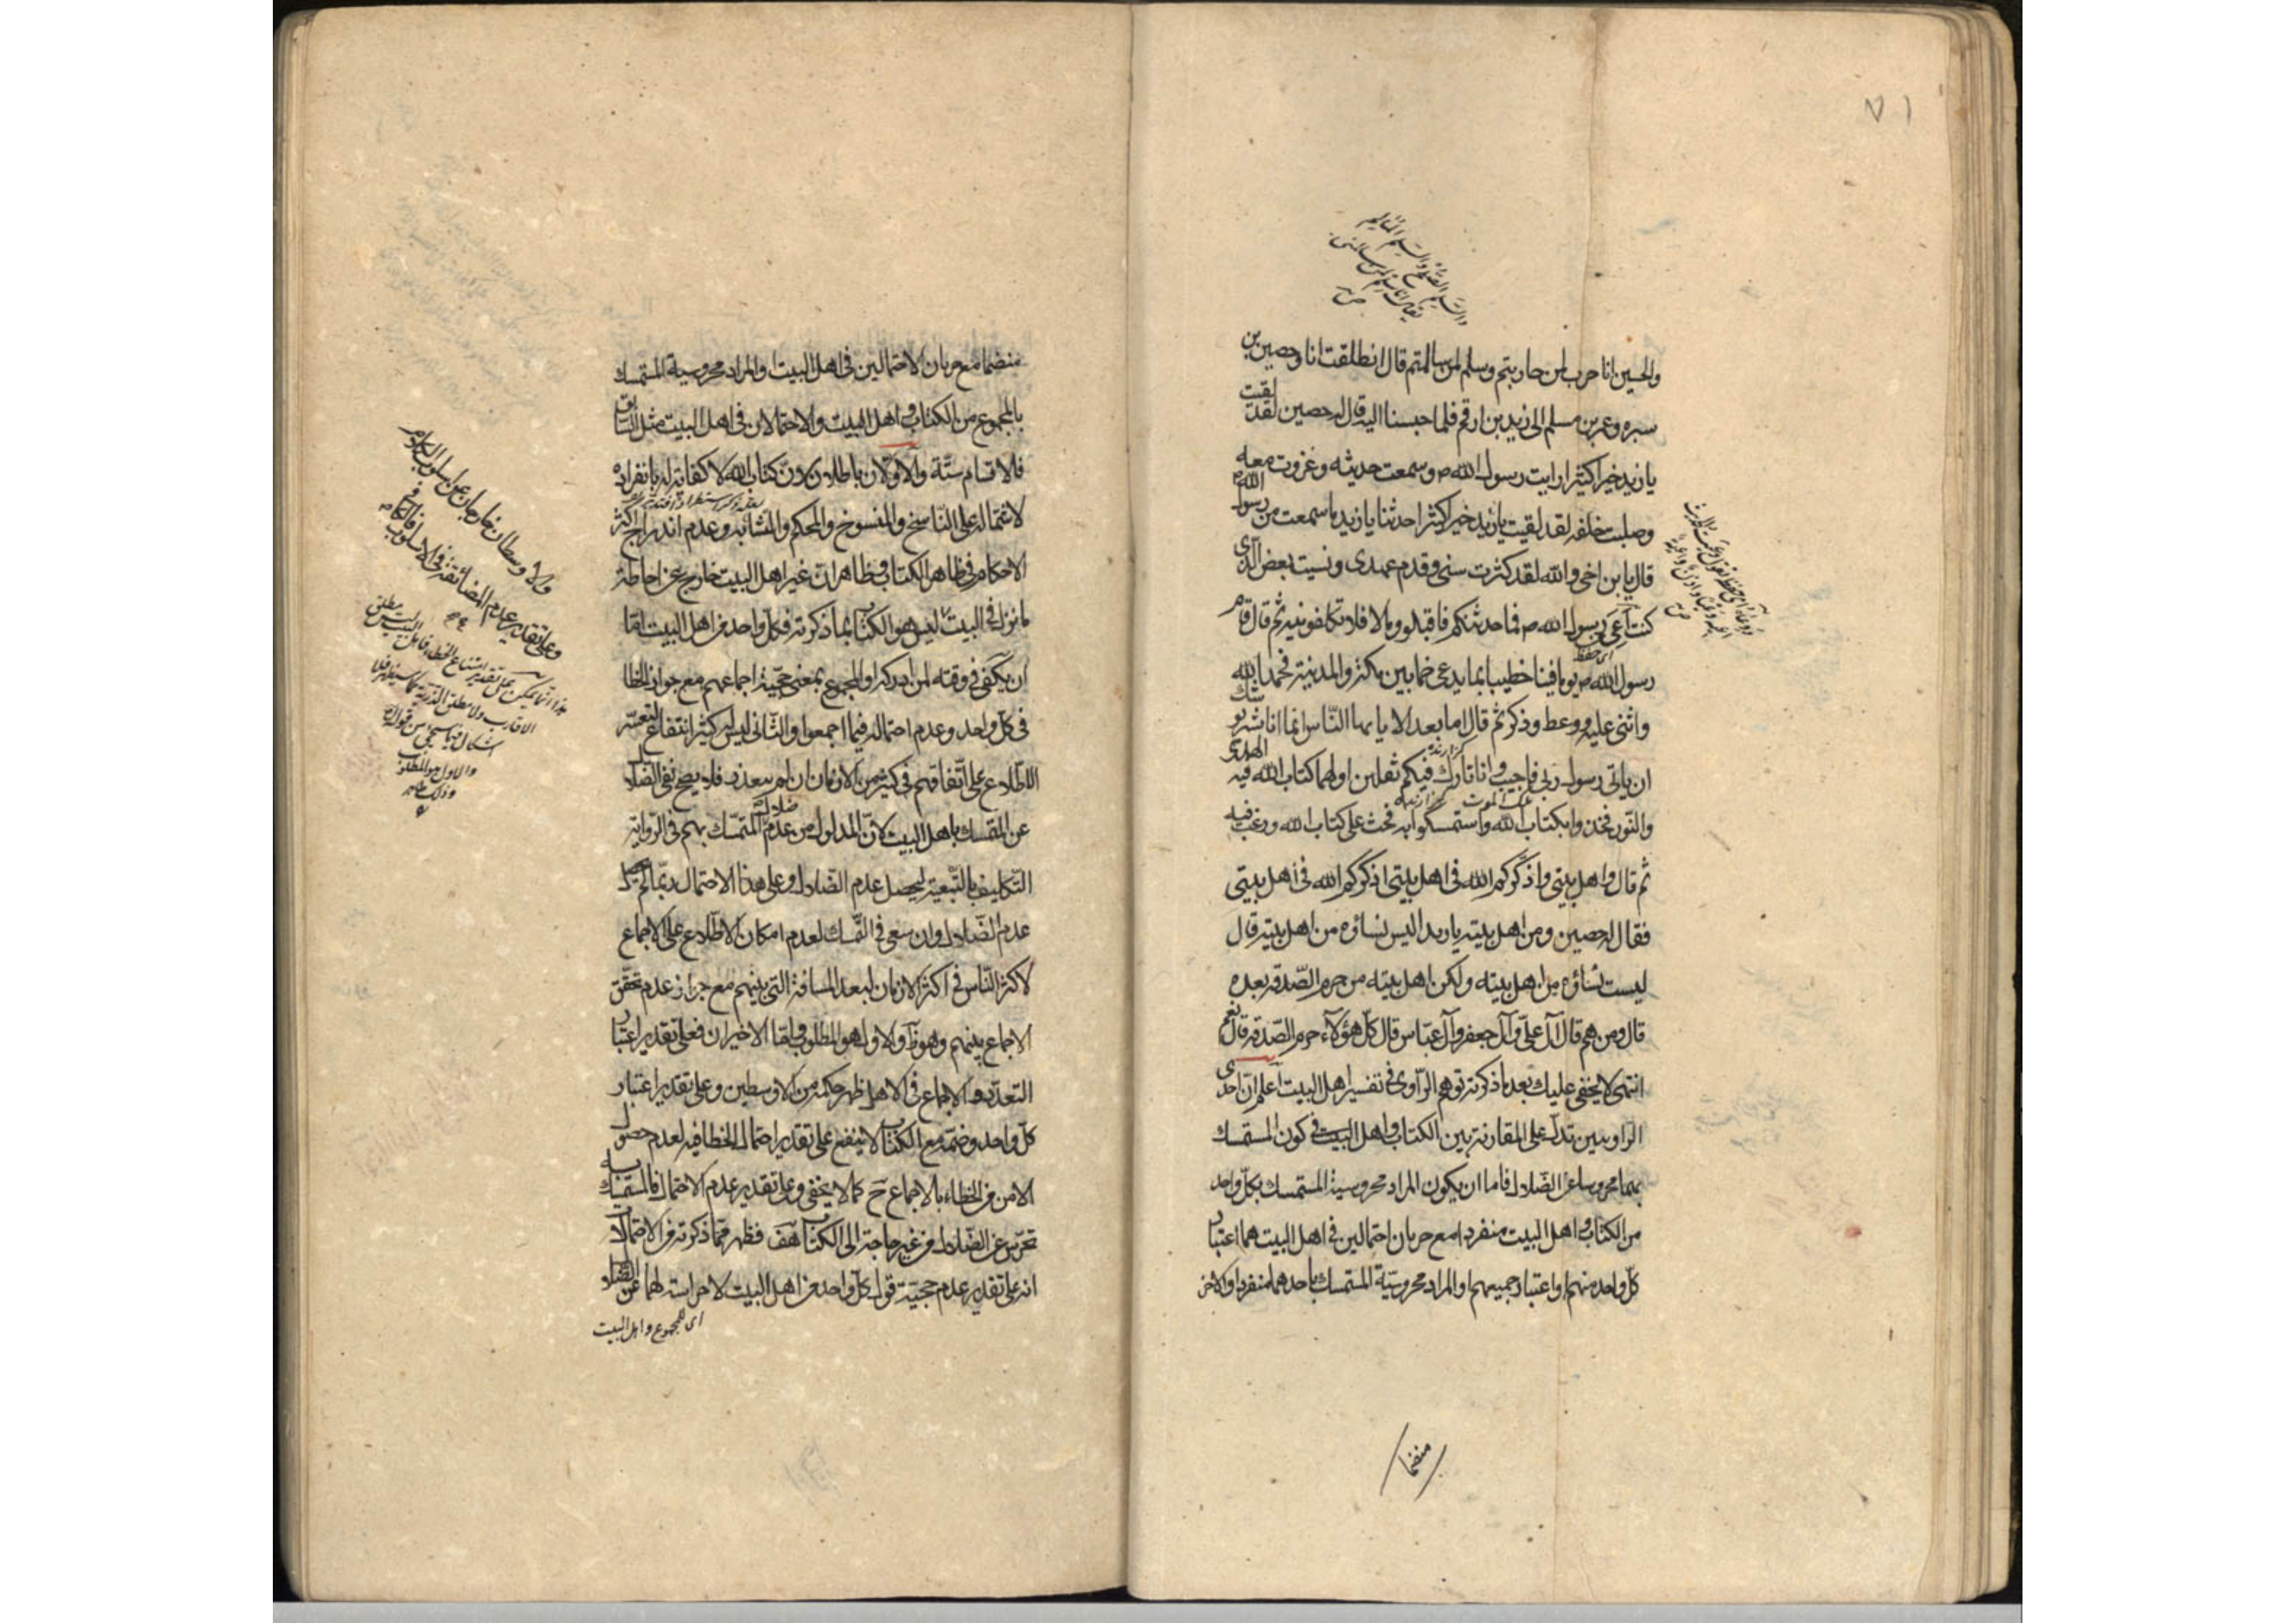 ٧١
والسلم الصلح والسلم المسالم
والحسين انا حرب لمن حاربتم وسلم لمن سالمتم قال انطلقت انا وحصين بن
سبره وعمر بن مسلم الى زيد بن ارقم فلما جلسنا اليه قال له حصين لقد لقيت
يا زيد خيرا كثيرا رايت رسول الله ص وسمعت حديثه وغزوت معه
وصليت خلفه لقد لقيت يا زيد خيرا كثيرا حدثنا يا زيد ما سمعت من رسول الله ص
قال يا بن اخي والله لقد كثرت سنى وقدم عهدى ونسيت بعض الذى
كنت اعى من رسول الله ص فما حدثتكم فاقبلوه وما لا فلا تكلفونيه ثم قال قام
اى حفظ
رسول الله ص يوما فينا خطيبا بما يدعى خما بين مكة والمدينة فحمد الله
واثنى عليه ووعظ وذكر ثم قال اما بعد الا يا ايها الناس انما انا بشر يوشك
ان ياتى رسول ربى فاجيب وانا تارك فيكم ثقلين اولهما كتاب الله فيه الهدى
والنور فخذوا بكتاب الله واستمسكوا به فحث على كتاب الله ورغب فيه
ثم قال واهل بيتى واذكركم الله فى اهل بيتى اذكركم الله فى اهل بيتى
فقال له حصين ومن اهل بيته يا زيد اليس نساؤه من اهل بيته قال
ليست نساؤه من اهل بيته ولكن اهل بيته من حرم الصدقة بعده
قال ومن هم قال آل على وآل جعفر وآل عباس قال كل هؤلاء حرم الصدقة قال نعم
انتهى لا يخفى عليك بعد ما ذكرته توهم الراوى فى تفسير اهل البيت اعلم ان احدى
الراويين تدل على المقارنة بين الكتاب واهل البيت فى كون المستمسك
بهما محروسا عن الضلال فاما ان يكون المراد محروسية المستمسك بكل واحد
من الكتاب واهل البيت منفردا مع جريان احتمالين فى اهل البيت هما اعتبار
كل واحد منهم واعتبار جميعهم او المراد محروسية المستمسك باحدهما منفردا والاخر
منضما
منضما مع جريان الاحتمالين فى اهل البيت او المراد محروسية المستمسك
بالمجموع من الكتاب واهل البيت والاحتمالان فى اهل البيت مثل السابق
فالاقسام ستة والاولان باطلان لان كتاب الله لا كفاية له بانفراده
لاشتماله على الناسخ والمنسوخ والمحكم والمتشابه وعدم اندراج اكثر
الاحكام فى ظاهر الكتاب وظاهر ان غير اهل البيت خارج عن احاطة
ما نزل فى البيت ليس هو الكتاب بما ذكرته فكل واحد من اهل البيت اما
ان يكفى فى وقته لمن ادركه او المجموع بمعنى حجية اجماعهم مع جواز الخطا
فى كل واحد وعدم احتماله فيما اجمعوا والثانى ليس له كثير انتفاع لتعسر
الاطلاع على اتفاقهم فى كثير من الازمان ان لم يتعذر فلا يصح نفى الضلال
عن المتمسك باهل البيت لان المدلول من عدم ضلالة المتمسك بهم فى الرواية
التكليف بالتبعية ليحصل عدم الضلال وعلى هذا الاحتمال ربما لم يحصل
عدم الضلال وان سعى فى التمسك لعدم امكان الاطلاع على الاجماع
لاكثر الناس فى اكثر الازمان لبعد المسافة التى بينهم مع جواز عدم تحقق
الاجماع بينهم وهو ظ والاول هو المطلوب واما الاخيران فعلى تقدير اعتبار
التعدد والاجماع فى الاهل ظهر حكمه من الاوسطين وعلى تقدير اعتبار
كل واحد وضمه مع الكتاب لا ينفع على تقدير احتمال الخطا فيه لعدم حصول
الامن من الخطاء بالاجماع ح كما لا يخفى وعلى تقدير عدم الاحتمال فالمستمسك به
تحرس عن الضلال من غير حاجة الى الكتاب هف فظهر مما ذكرته من الاحتمالات
انه على تقدير عدم حجية قول كل واحد من اهل البيت لا حراسة لهما عن الضلال
اى للمجموع واهل البيت
والاوسطان خارجان عن اسلوب الكلام
وعلى تقدير عدم المضائقة فى الاسلوب
هذا انما يمكن على تقدير امتناع الخطاء
والاول هو المطلوب
وذلك ظاهر